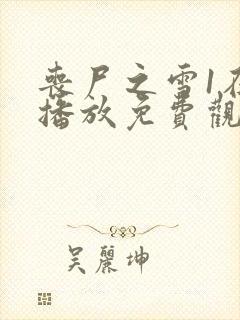 喪尸之雪1在
播放免費觀
吴麗坤